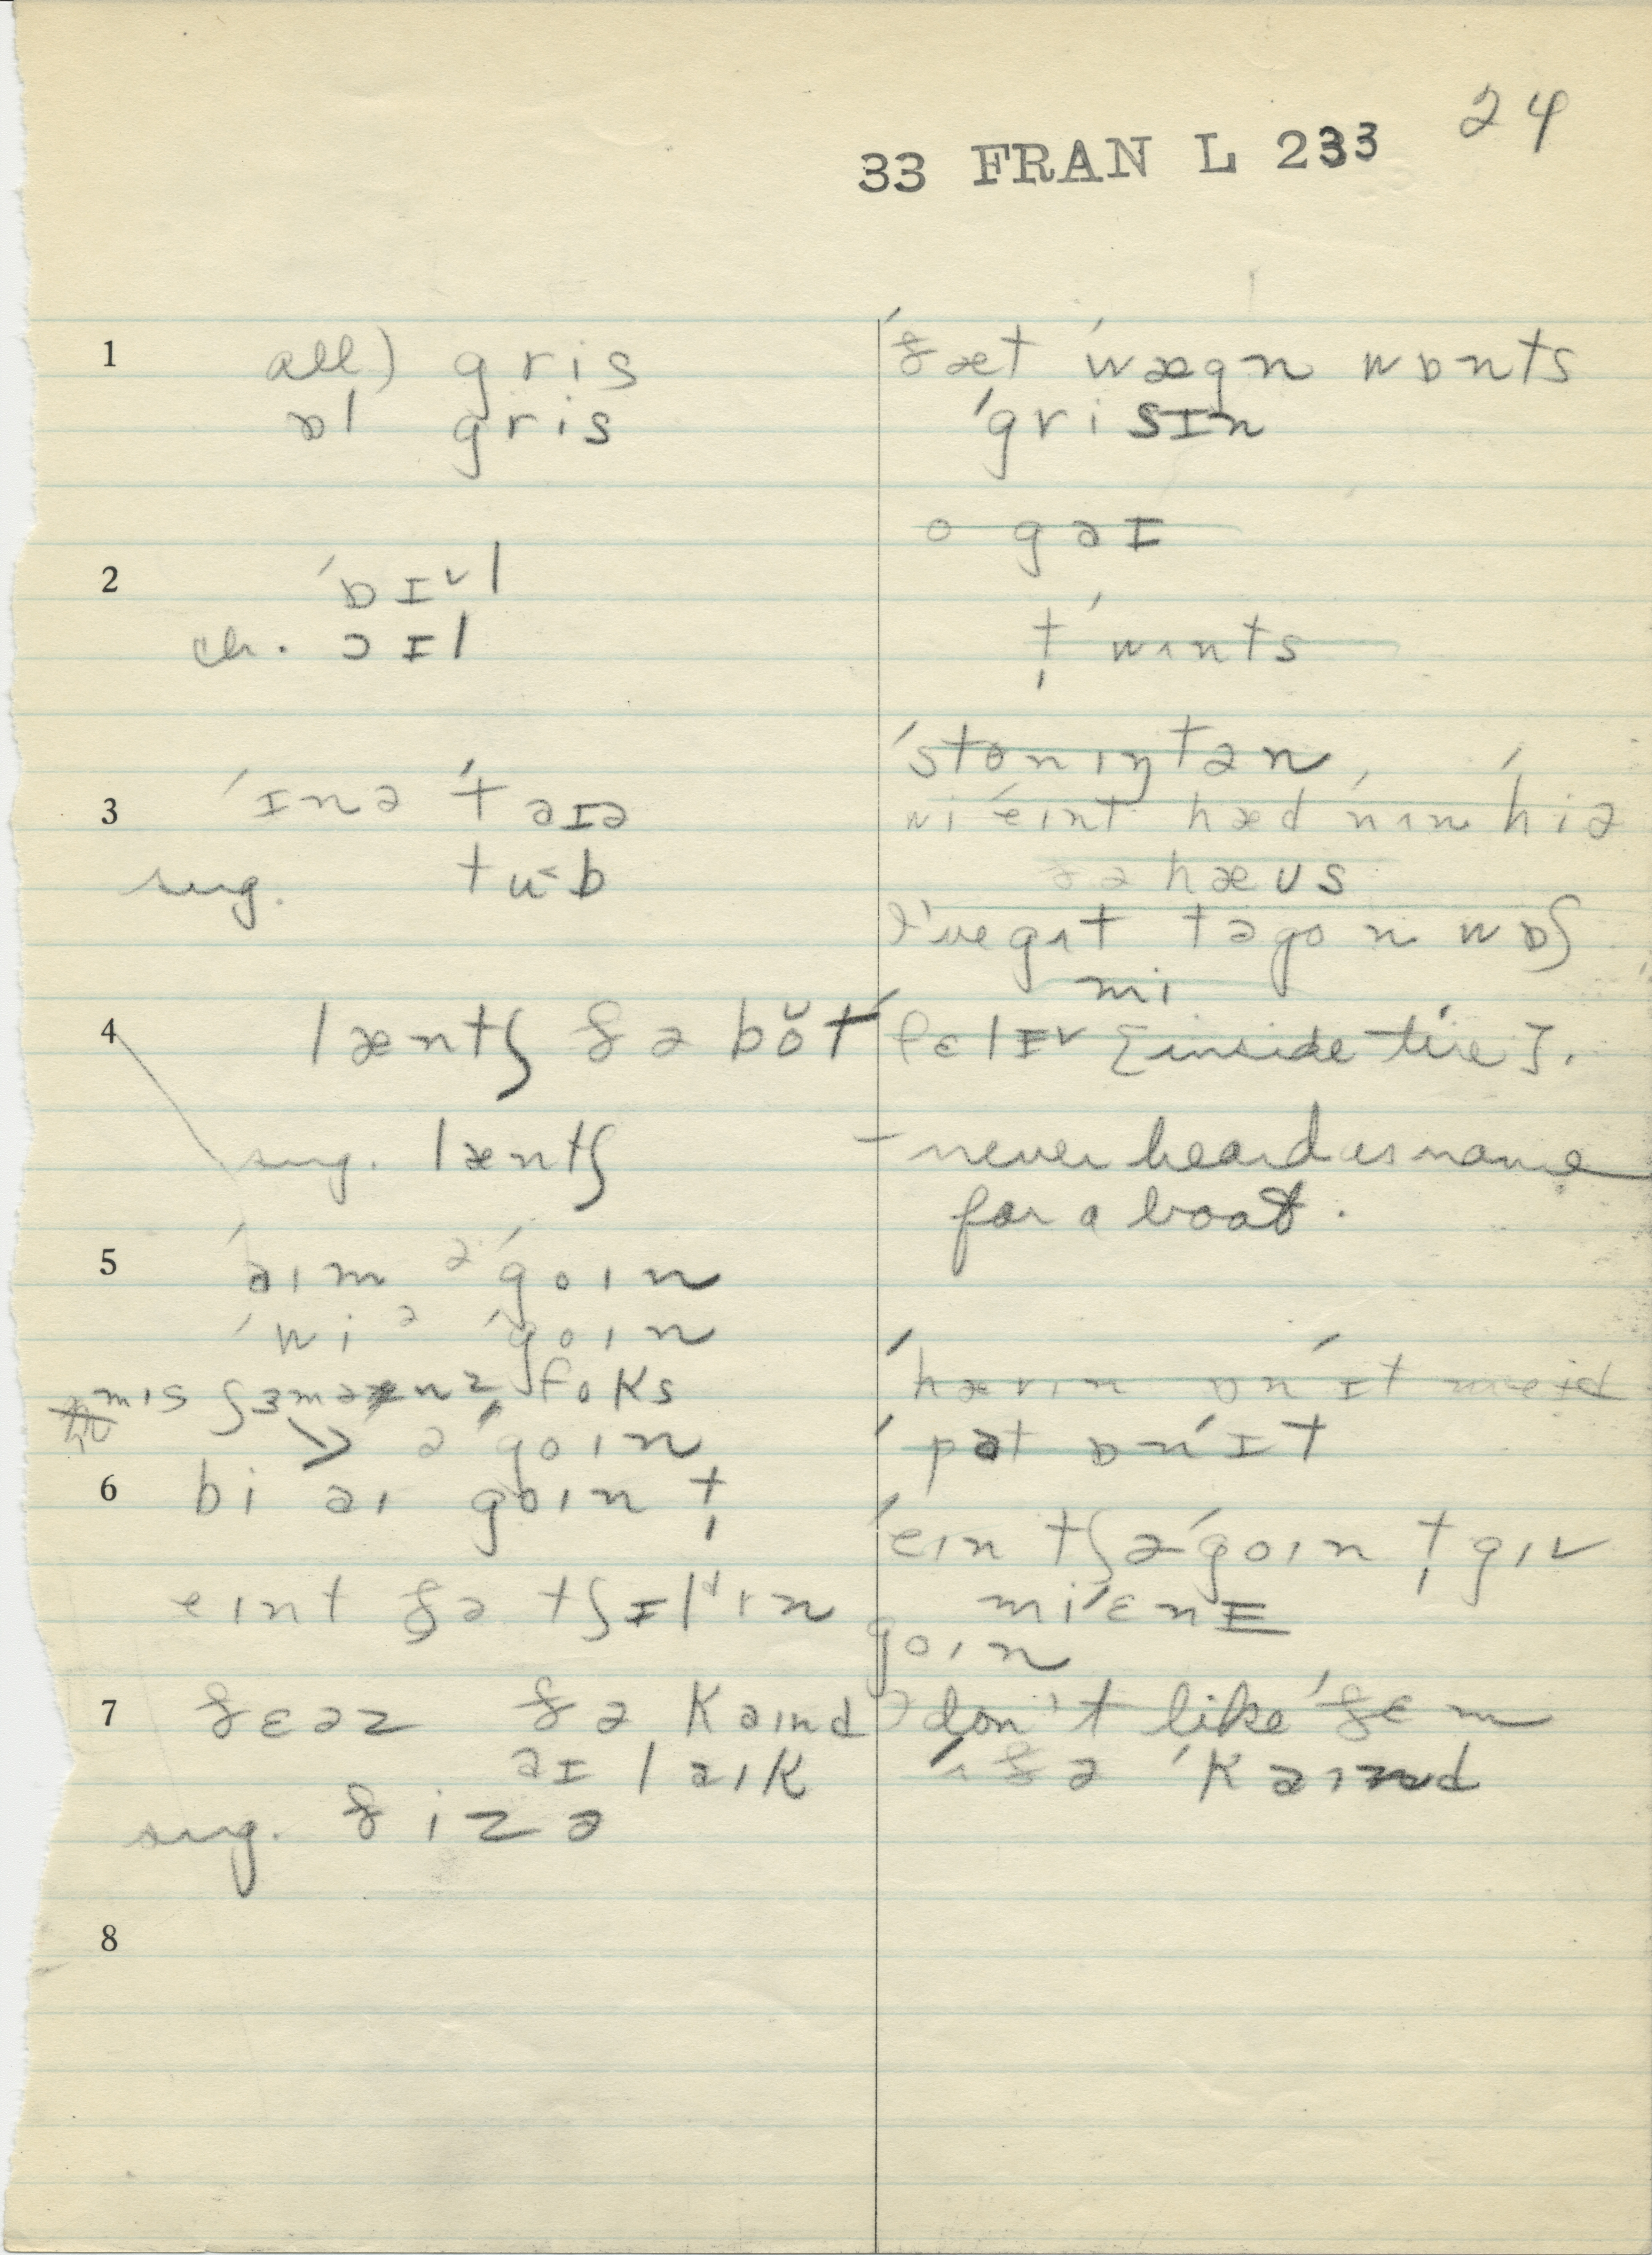 24
33 FRAN L 233
1 all) gris
ɒl gris
2 ˈɒɪᵛl
ch. ɔɪl
3 ˈɪnə ˈtaɪə
sug. tuˑb
4 læntʃ ðə bo̯t
sug. læntʃ
5 ˈaɪm əˈgoɪn
ˈwi əˈgoɪn
mɪs foks
əˈgoɪn
6 bi aɪ goɪn t̩
eɪnt ðə tʃɪlᵈrɪn goɪn
7 ðɛəz ðə kaɪnd
aɪ laɪk
sug. ðizə
8
ˈðæt ˈwægn wɒnts
ˈgrisɪn
o gaɪ
t̩ ˈwʌnts
ˈstonɪŋtən
wi ˈeɪnt hæd ˈnʌn ˈhiə
ðə hæus
I've gʌt tə go n wɒʃ
mi
ˈfɛlɪᵛ [inside tire].
– never heard as name
for a boat.
ˈhævɪn ɒn ˈɪt meɪd
ˈpət ɒn ˈɪt
ˈeɪn tʃ əˈgoɪn t̩ gɪv
mi ˈɛnɪ
I don't like ˈðɛm
ˈʌ ðə ˈkaɪnd